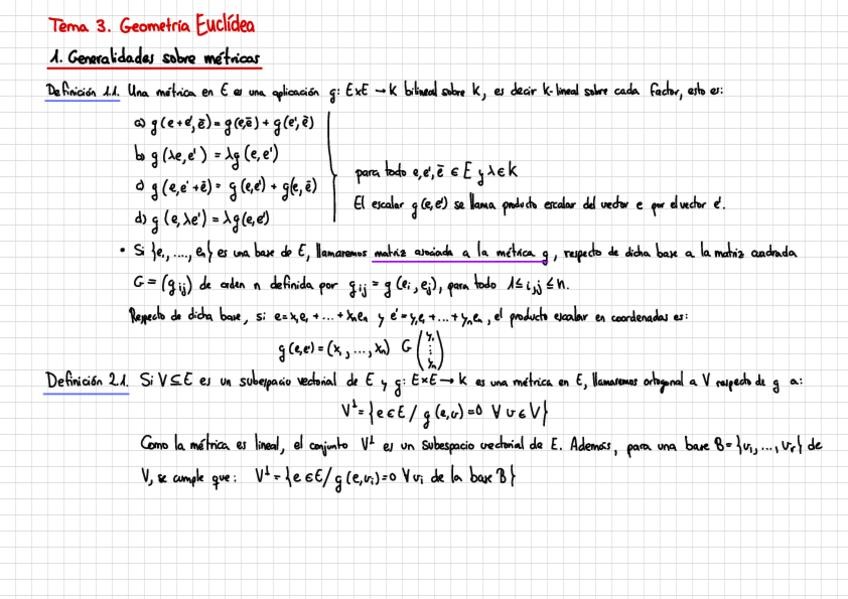 Tema 3. Geometría Euclídea
1. Generalidades sobre métricas
Definición 1.1. Una métrica en E es una aplicación g: E×E → k bilineal sobre k, es decir k-lineal sobre cada factor, esto es:
a) g(e+e', ē) = g(e,ē) + g(e',ē)
b) g(λe,e') = λg(e,e')
c) g(e,e'+ē) = g(e,e') + g(e,ē)
d) g(e,λe') = λg(e,e')
para todo e,e',ē ∈ E y λ∈k
El escalar g(e,e') se llama producto escalar del vector e por el vector e'.
• Si {e₁, ...., eₙ} es una base de E, llamaremos matriz asociada a la métrica g, respecto de dicha base a la matriz cuadrada
G = (gᵢⱼ) de orden n definida por gᵢⱼ = g(eᵢ, eⱼ), para todo 1≤i,j≤n.
Respecto de dicha base, si e=x₁e₁+...+xₙeₙ y e'=y₁e₁+...+yₙeₙ, el producto escalar en coordenadas es:
g(e,e') = (x₁, ..., xₙ) G (y₁ ⋮ yₙ)
Definición 2.1. Si V⊆E es un subespacio vectorial de E y g: E×E → k es una métrica en E, llamaremos ortogonal a V respecto de g a:
V⊥ = {e∈E / g(e,v)=0 ∀ v∈V}
Como la métrica es lineal, el conjunto V⊥ es un subespacio vectorial de E. Además, para una base B={v₁,...,vᵣ} de
V, se cumple que: V⊥ = {e∈E/ g(e,vᵢ)=0 ∀ vᵢ de la base B}